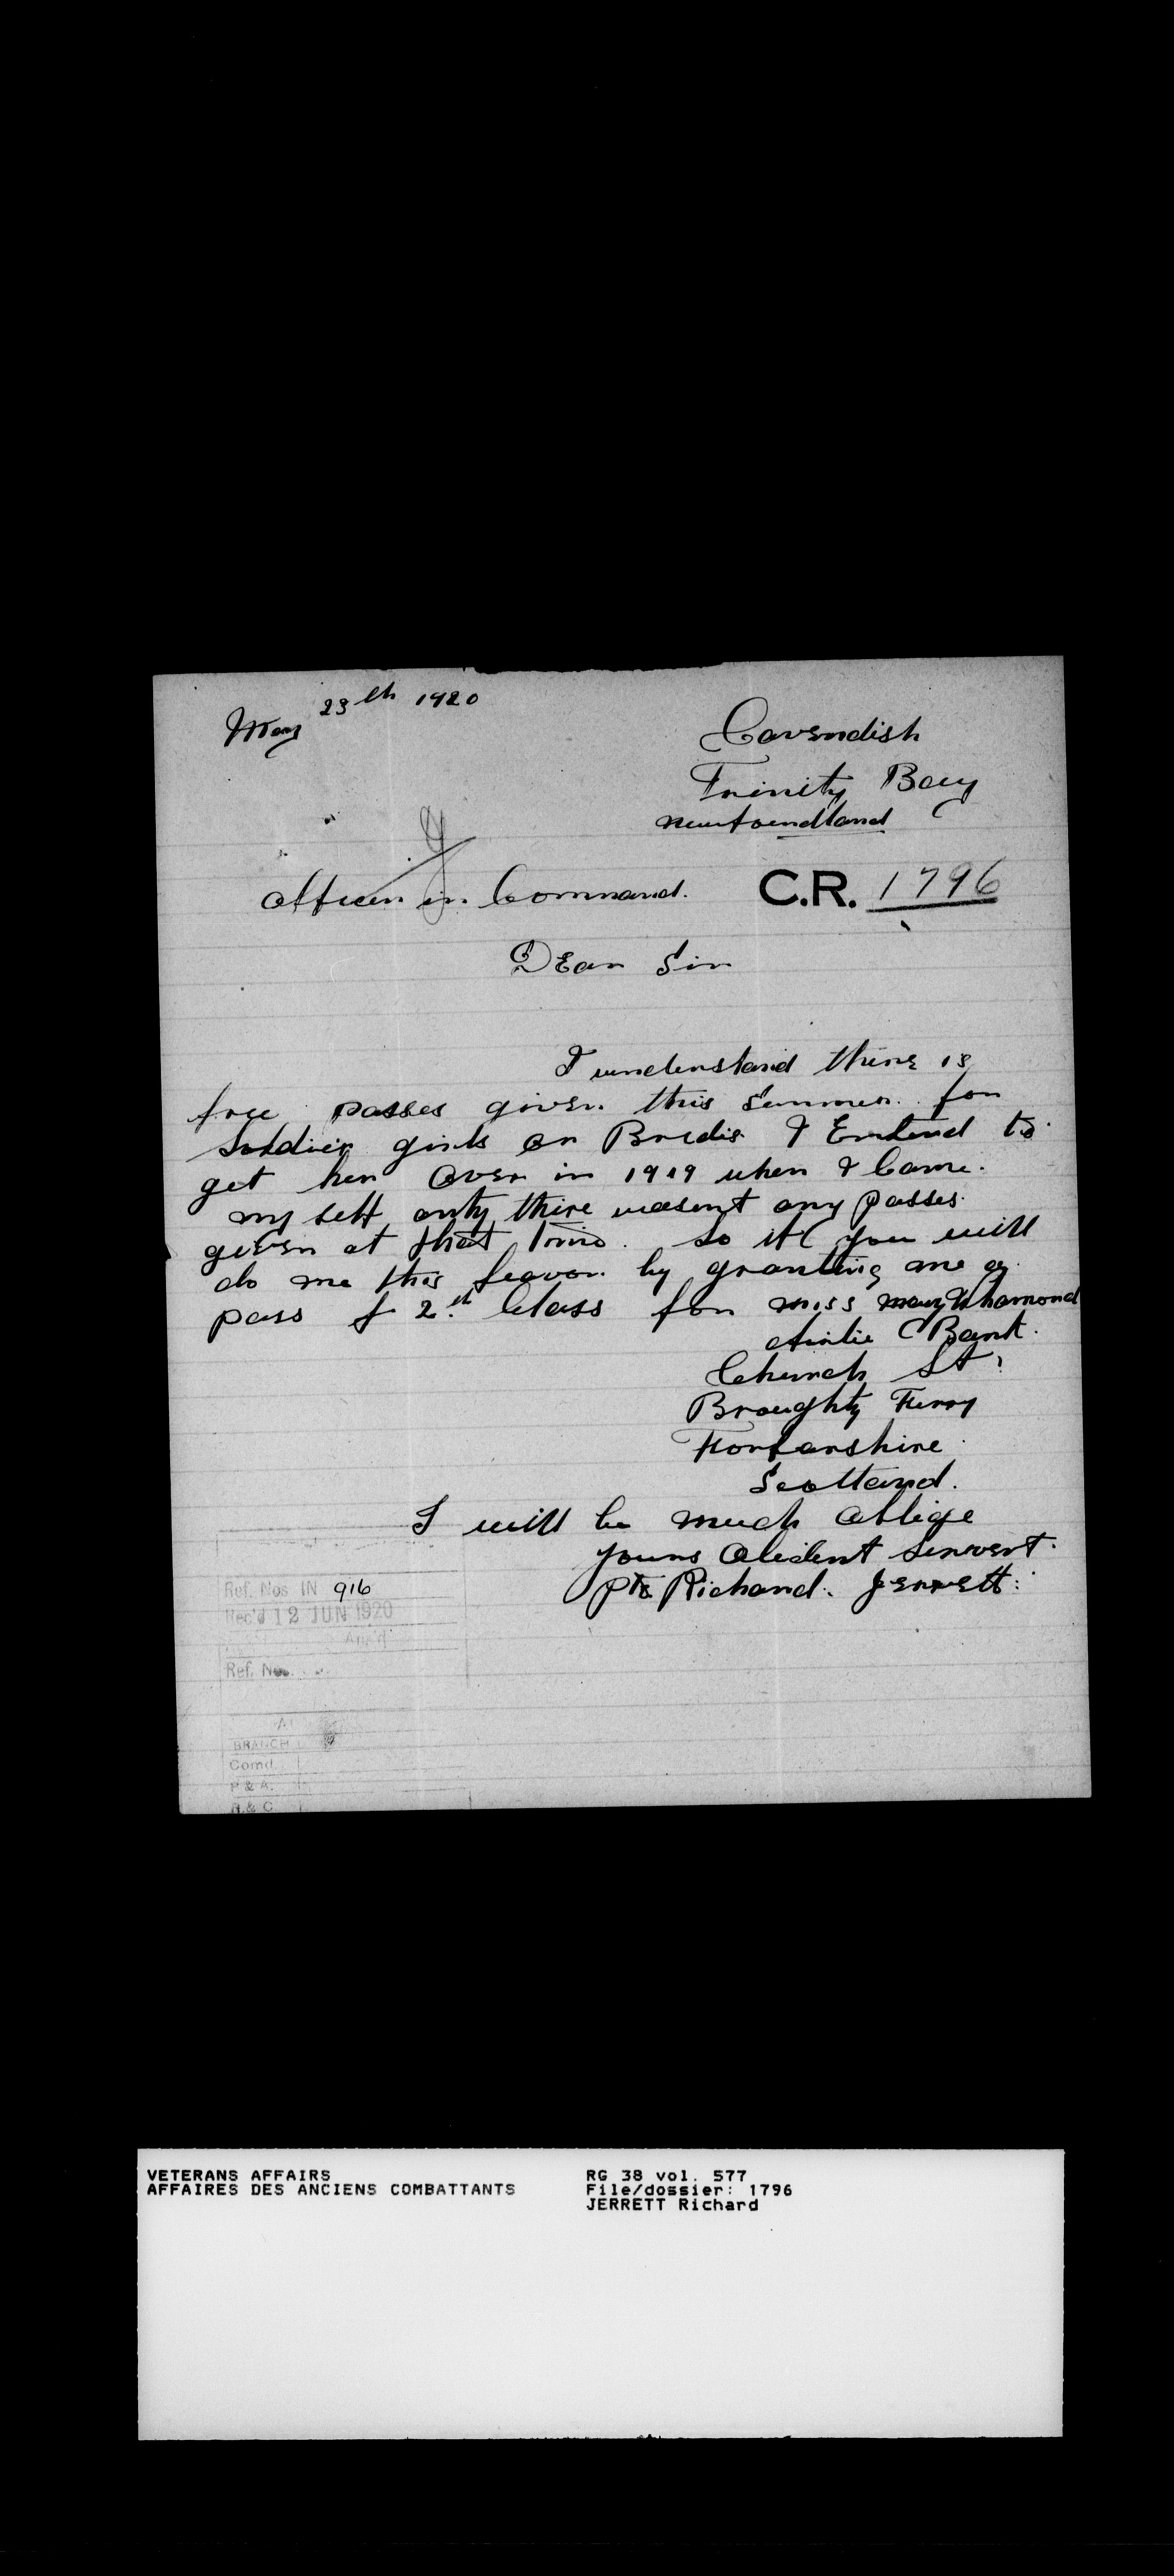 May 23th 1920
Cavendish
Trinity Bay
Newfoundland
Officer in Command.
C.R. 1796
Dear Sir
I understand there is
free passes given this summer for
soldier girls or Bredis I Entend to
get her over in 1919 when I Came
my self only there wasent any passes
given at that time. So if you will
do me this favor by granting me a
pass of 2th Class for miss may
Airlie Bank
Church St
Broughty Ferry
Forfarshire
Scotland.
I will be much oblige
yours obident servent
Pte Richard Jerrett
Ref. Nos IN 916
Rec'd 12 JUN 1920
Ref. No.
BRANCH
Comd.
P & A.
R & C.
VETERANS AFFAIRS
AFFAIRES DES ANCIENS COMBATTANTS
RG 38 vol. 577
File/dossier: 1796
JERRETT Richard